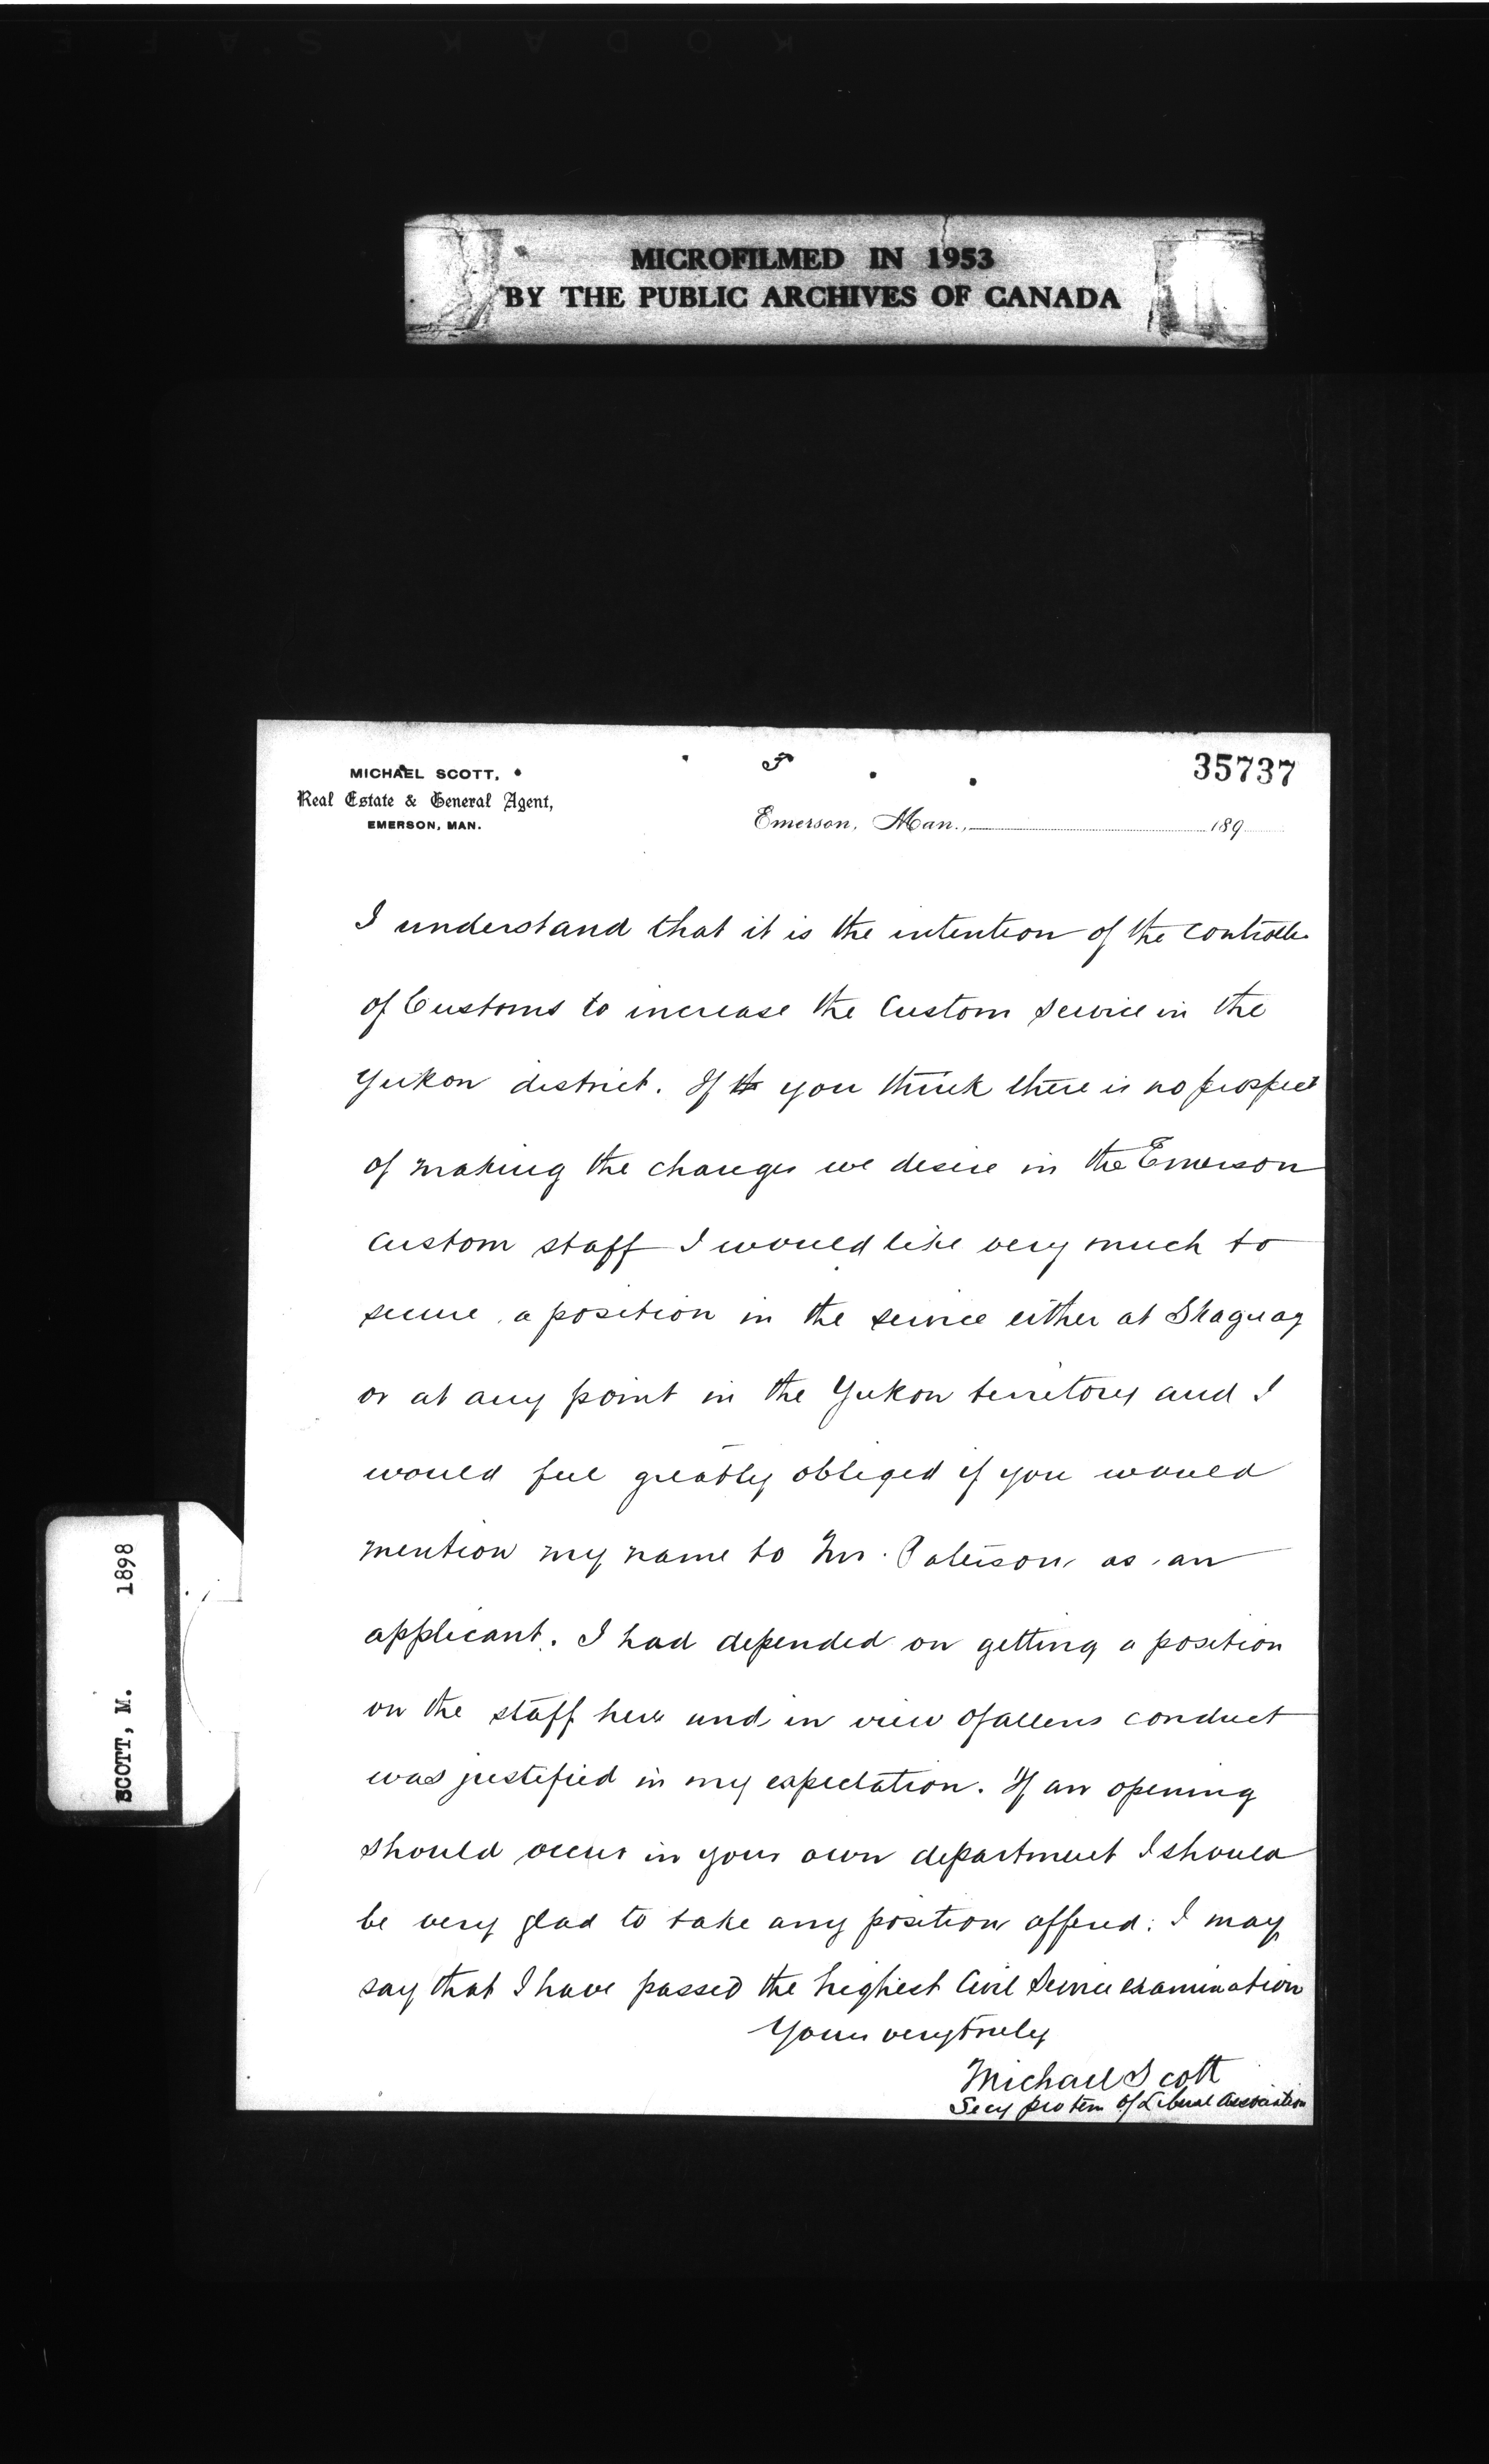 MICROFILMED IN 1953
BY THE PUBLIC ARCHIVES OF CANADA
35737
MICHAEL SCOTT,
Real Estate & General Agent,
EMERSON, MAN.
Emerson, Man., 189
I understand that it is the intention of the controller
of Customs to increase the Custom Service in the
Yukon district. If you think there is no prospect
of making the changes we desire in the Emerson
Custom staff I would like very much to
secure a position in the service either at Skaguay
or at any point in the Yukon territory and I
would feel greatly obliged if you would
mention my name to Mr. Paterson as an
applicant. I had depended on getting a position
on the staff here and in view of allens conduct
was justified in my expectation. If an opening
should occur in your own department I should
be very glad to take any position offered. I may
say that I have passed the highest Civil Service examination
Yours very truly
Michael Scott
Secy pro tem of Liberal Association
SCOTT, M. 1898